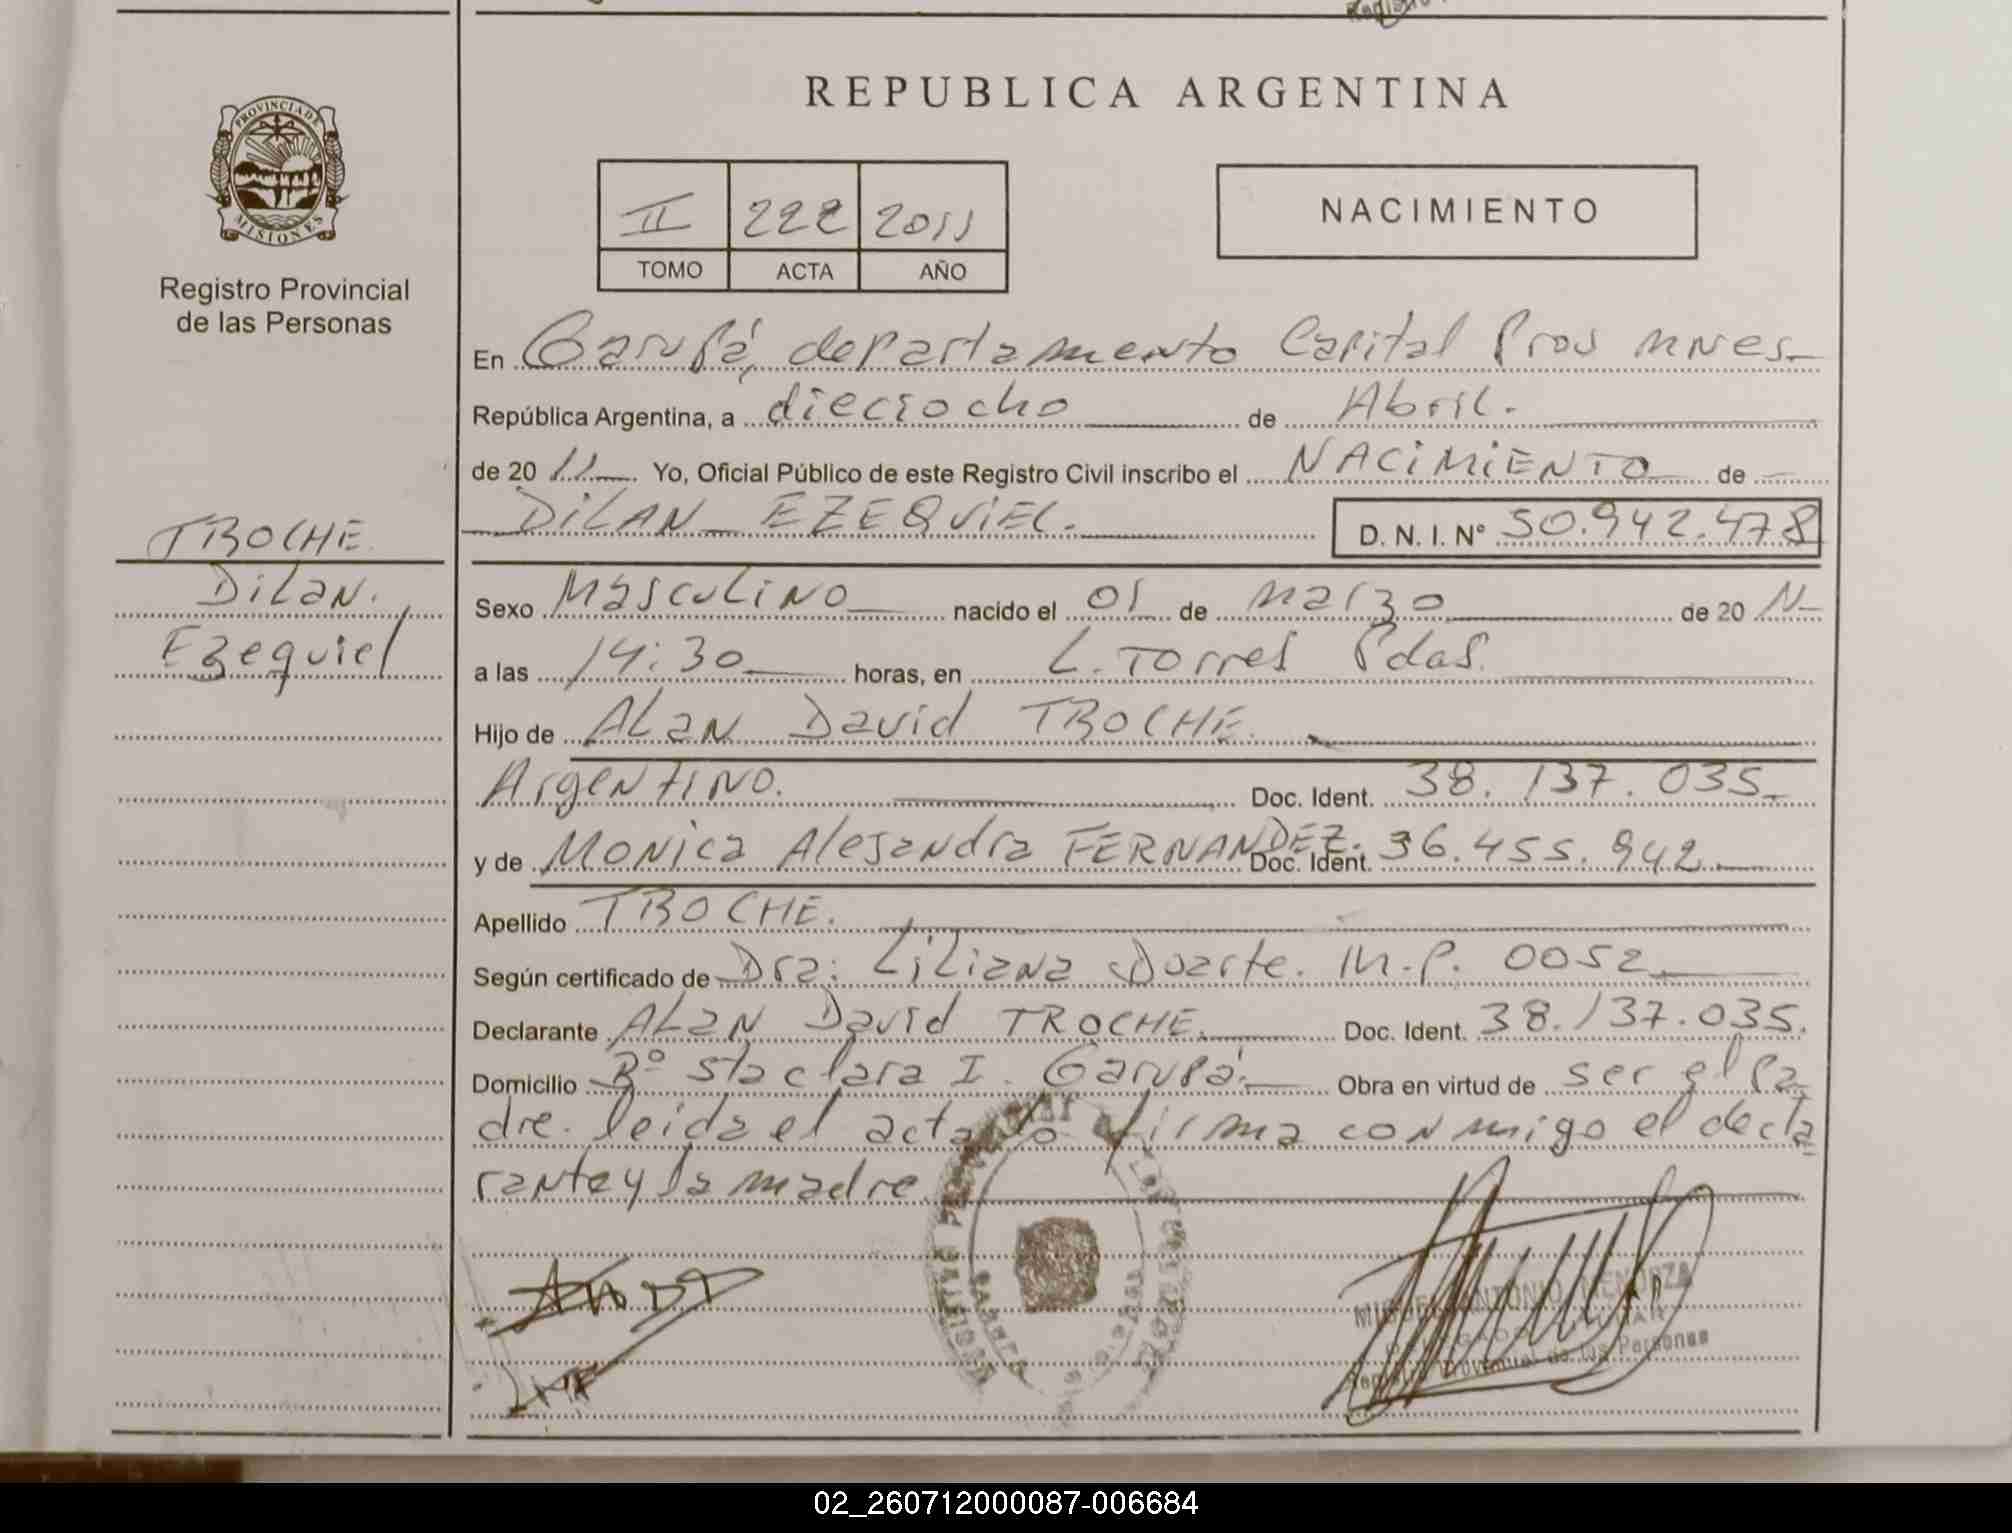 REPUBLICA ARGENTINA
PROVINCIA DE
MISIONES
Registro Provincial
de las Personas
II 222 2011
TOMO ACTA AÑO
NACIMIENTO
En Garupá, departamento Capital Prov Mnes
República Argentina, a dieciocho de Abril.
de 20 11 Yo, Oficial Público de este Registro Civil inscribo el NACIMIENTO de
DILAN EZEQUIEL. D. N. I. Nº 50.942.478
TROCHE
Dilan.
Ezequiel
Sexo Masculino nacido el 01 de marzo de 20 11
a las 14:30 horas, en L. Torres Pdas.
Hijo de Alan David TROCHE.
Argentino. Doc. Ident. 38.137.035
y de Monica Alejandra FERNANDEZ. Doc. Ident. 36.455.942
Apellido TROCHE.
Según certificado de Dra: Liliana Duarte. M.P. 0052
Declarante Alan David TROCHE. Doc. Ident. 38.137.035.
Domicilio Bº Sta clara I. Garupá. Obra en virtud de ser el pa
dre. leida el acta la firma conmigo el decla
rante y la madre
MIGUEL ANTONIO MENDOZA
Registro Provincial de las Personas
02_260712000087-006684